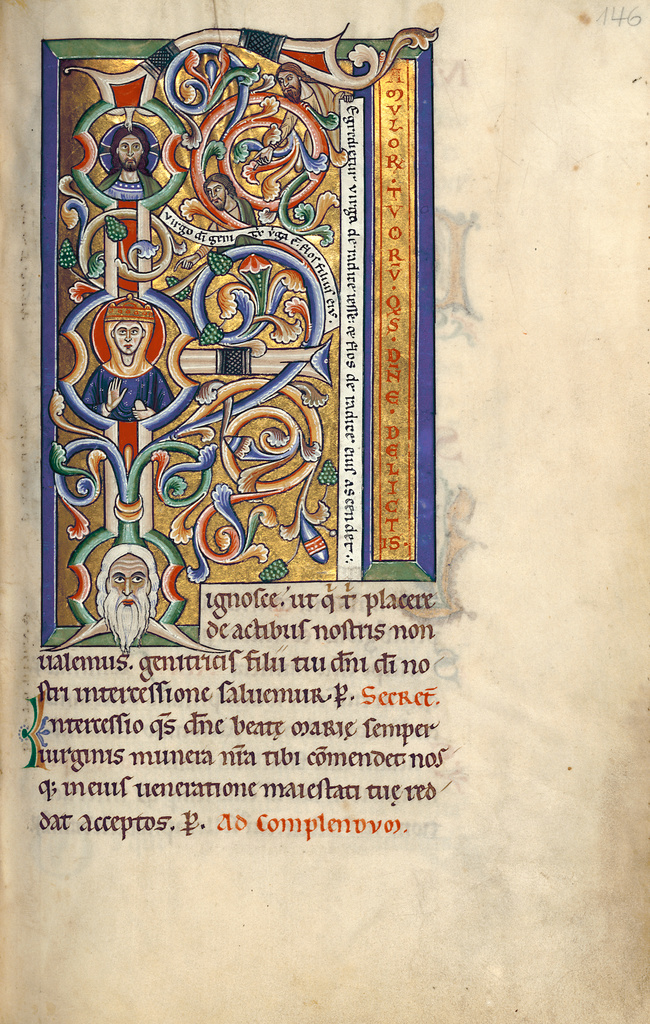 146
AMVLOR · TVORV̄ · QS · DN̄E · DELICTIS ·
Egredietur virgo de radice iesse: & flos de radice eius ascendet:
virgo di geni v̄ga ē flos filius eius.
ignosce. ut q̇ t̄ placere
de actibus nostris non
ualemus. genitricis filii tui dn̄i di no
stri intercessione saluemur. P. Secret.
Intercessio qs dn̄e beatę marię semper
uirginis munera nr̄a tibi cōmendet nos
q; in eius ueneratione maiestati tuę red
dat acceptos. P. Ad Complendvm.